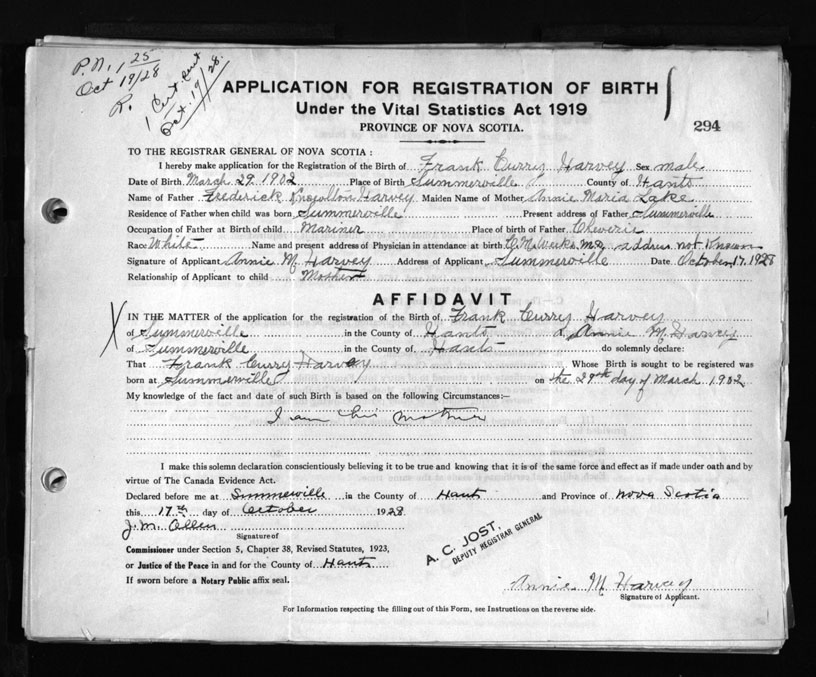 P.N. 1 25
Oct 19/28
R.
1 Cert. sent
Oct. 19/28.
APPLICATION FOR REGISTRATION OF BIRTH
Under the Vital Statistics Act 1919
PROVINCE OF NOVA SCOTIA.
294
TO THE REGISTRAR GENERAL OF NOVA SCOTIA :
I hereby make application for the Registration of the Birth of Frank Curry Harvey Sex male
Date of Birth March 29. 1902 Place of Birth Summerville County of Hants
Name of Father Frederick Harvey Maiden Name of Mother Annie Maria Lake
Residence of Father when child was born Summerville Present address of Father Summerville
Occupation of Father at Birth of child Mariner Place of birth of Father Cheverie
Race White Name and present address of Physician in attendance at birth C. M.D. address not Known
Signature of Applicant Annie M Harvey Address of Applicant Summerville Date October, 17. 1928
Relationship of Applicant to child Mother
AFFIDAVIT
IN THE MATTER of the application for the registration of the Birth of Frank Curry Harvey
of Summerville in the County of Hants I, Annie M. Harvey
of Summerville in the County of Hants do solemnly declare:
That Frank Curry Harvey Whose Birth is sought to be registered was
born at Summerville on the 29th day of March 1902
My knowledge of the fact and date of such Birth is based on the following Circumstances:—
I am his mother
I make this solemn declaration conscientiously believing it to be true and knowing that it is of the same force and effect as if made under oath and by
virtue of The Canada Evidence Act.
Declared before me at Summerville in the County of Hants and Province of Nova Scotia
this 17th day of October 1928
J. M. Allen
Signature of
Commissioner under Section 5, Chapter 38, Revised Statutes, 1923,
or Justice of the Peace in and for the County of Hants
If sworn before a Notary Public affix seal.
A. C. JOST,
DEPUTY REGISTRAR GENERAL
Annie M Harvey
Signature of Applicant.
For Information respecting the filling out of this Form, see Instructions on the reverse side.